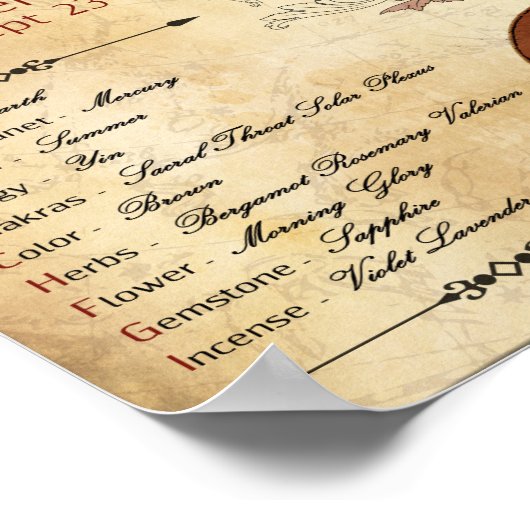 pt 23
arth
anet - Mercury
- Summer
gy - Yin
akras - Sacral Throat Solar Plexus
Color - Brown
Herbs - Bergamot Rosemary Valerian
Flower - Morning Glory
Gemstone - Sapphire
Incense - Violet Lavender